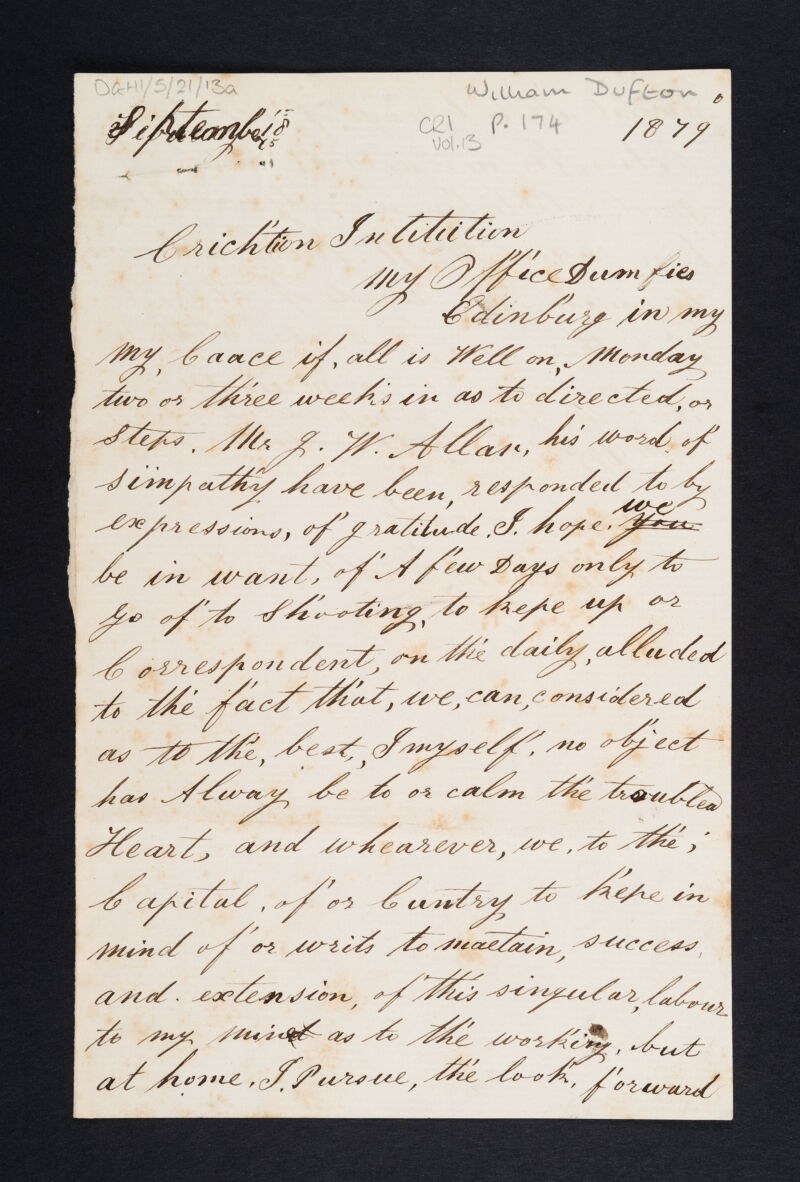 DGH1/5/21/13a
William Dufton
CRI P. 174
Vol. 13
September 1879
Crichtion Intitution
My Office Dumfies
Edinburg in my
My, Caace if, all is Well on, Monday
two or three weeks in as to directed, or
Steps. Mr J. W. Allan, his word of
simpathy have been, responded to by
expressions, of gratitude. I. hope. we you
be in want, of A few Days only to
go of to Shooting, to kepe up or
Correspondent, on the daily, alluded
to the fact that, we, can, considered
as to the, best, I myself, no object
has Alway be to or calm the troubled
Heart, and whearever, we, to the;
Capital, of or Cuntry to kepe in
mind of or writs to maetain, success,
and. extension, of this singular, labour
to my mind as to the working, but
at home. I. Pursue, the look, forward